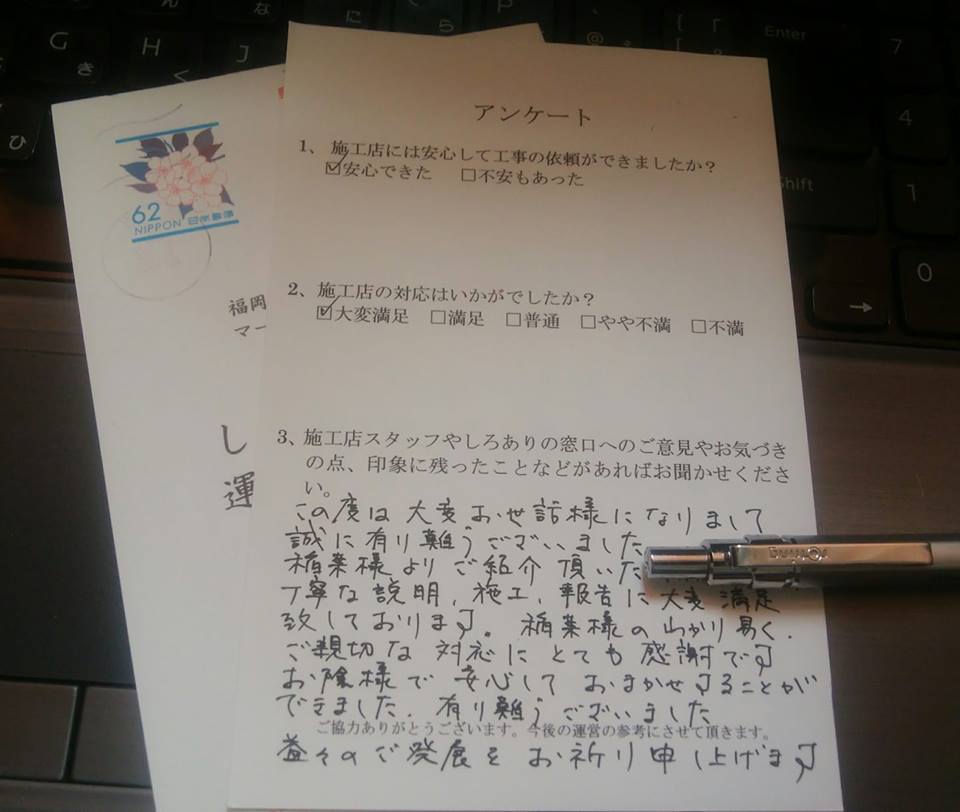 アンケート
1、施工店には安心して工事の依頼ができましたか？
☑安心できた □不安もあった
2、施工店の対応はいかがでしたか？
☑大変満足 □満足 □普通 □やや不満 □不満
3、施工店スタッフやしろありの窓口へのご意見やお気づき
の点、印象に残ったことなどがあればお聞かせくださ
い。
この度は大変お世話様になりまして
誠に有り難うございました
稲葉様よりご紹介頂いた
丁寧な説明、施工、報告に大変満足
致しております。稲葉様のわかり易く、
ご親切な対応にとても感謝です
お陰様で安心しておまかせすることが
できました。有り難うございました
ご協力ありがとうございます。今後の運営の参考にさせて頂きます。
益々のご発展をお祈り申し上げます
62
NIPPON 日本郵便
福岡
マー
し
運
G
き
H
く
J
な
に
ら
ひ
Enter
Shift
7
4
1
0
→